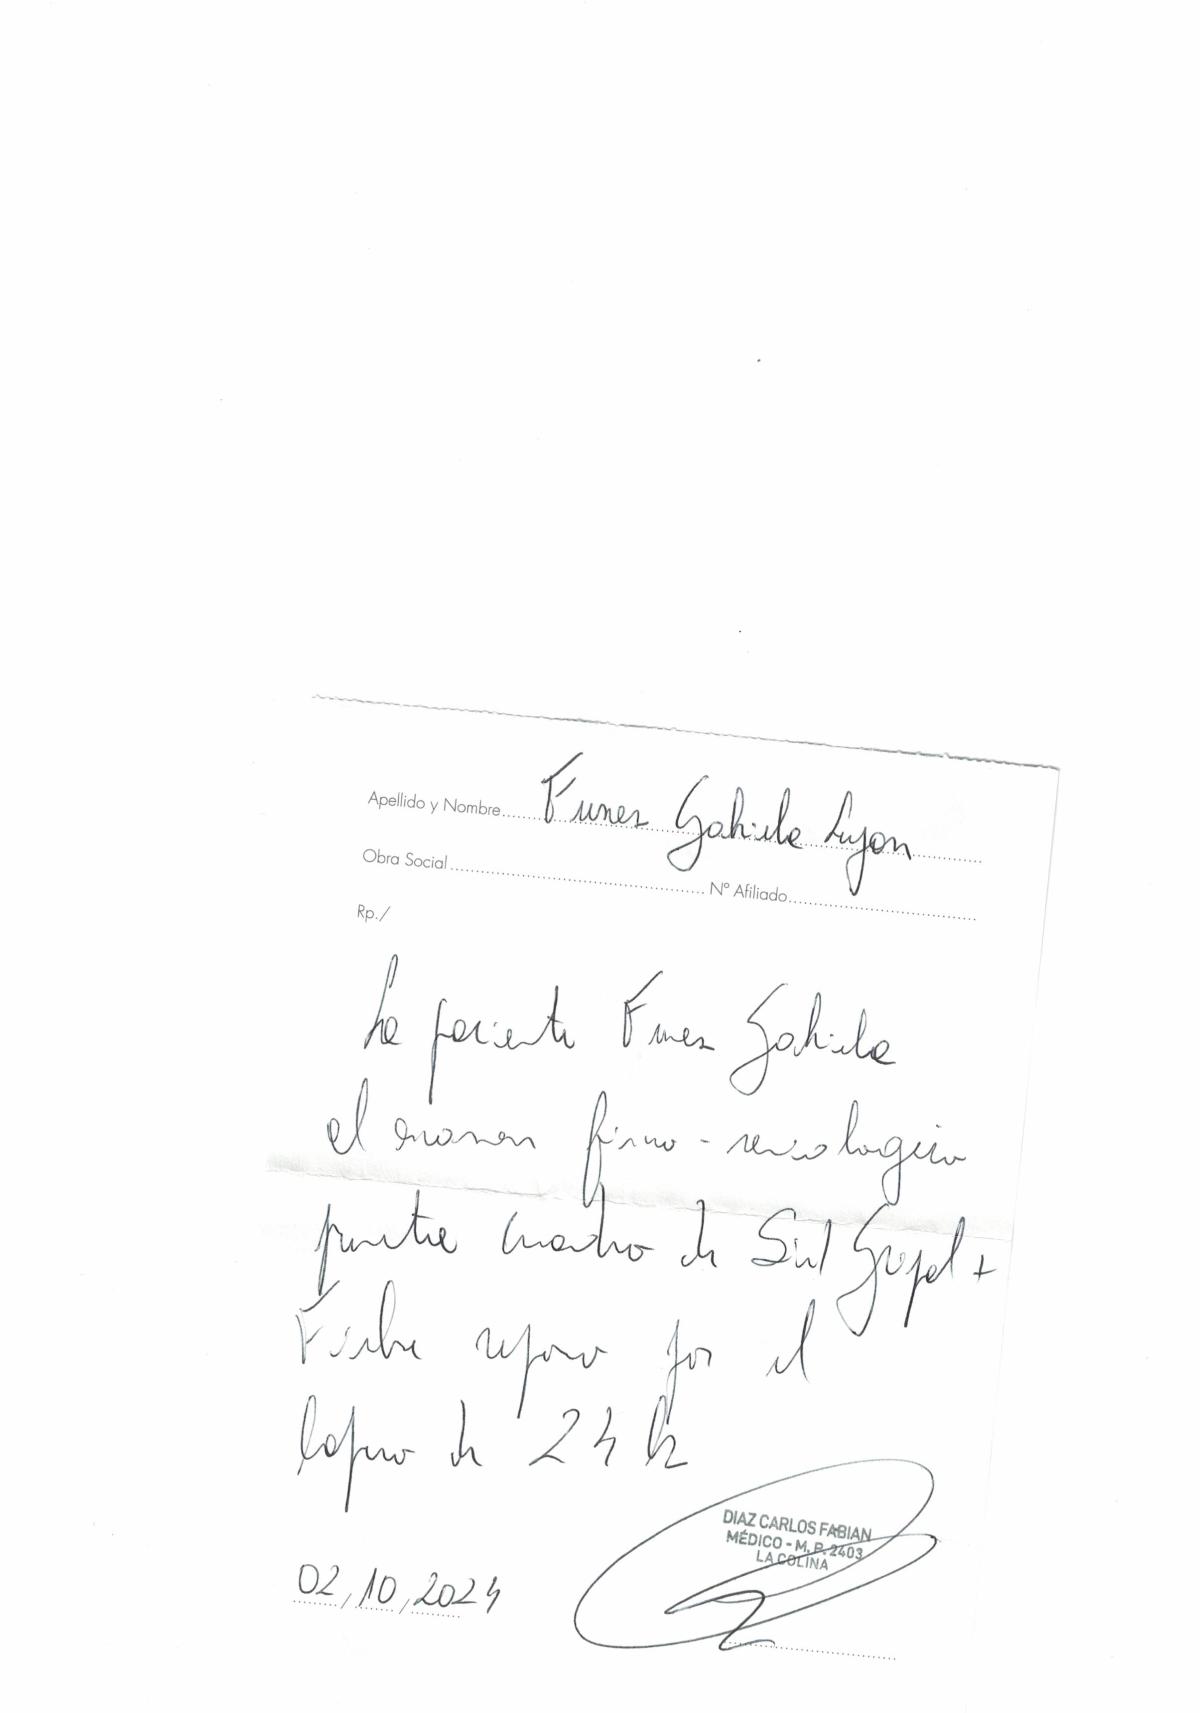 Apellido y Nombre Funes Gabriela Lujan
Obra Social Nº Afiliado
Rp./
La paciente Funes Gabriela
el examen fisico - semiologico
presenta cuadro de Sind Gripal +
Fiebre reposo por el
lapso de 24 hs
DIAZ CARLOS FABIAN
MÉDICO - M. P. 2403
LA COLINA
02/10/2024